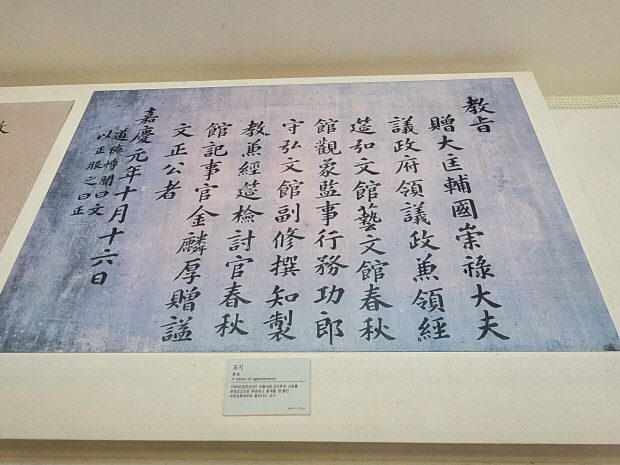 教旨
贈大匡輔國崇祿大夫
議政府領議政兼領經
筵弘文館藝文館春秋
館觀象監事行務功郎
守弘文館副修撰知製
教兼經筵檢討官春秋
館記事官金麟厚贈諡
文正公者
嘉慶元年十月十六日
道德博聞曰文
以正服之曰正
교지
教旨
A letter of appointment